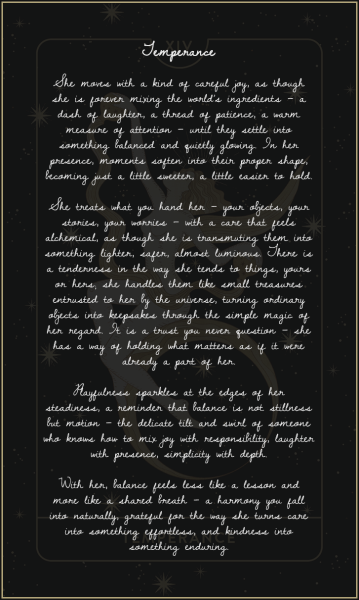 XIV
Temperance
She moves with a kind of careful joy, as though
she is forever mixing the world's ingredients – a
dash of laughter, a thread of patience, a warm
measure of attention – until they settle into
something balanced and quietly glowing. In her
presence, moments soften into their proper shape,
becoming just a little sweeter, a little easier to hold.
She treats what you hand her – your objects, your
stories, your worries – with a care that feels
alchemical, as though she is transmuting them into
something lighter, safer, almost luminous. There is
a tenderness in the way she tends to things, yours
or hers, she handles them like small treasures
entrusted to her by the universe, turning ordinary
objects into keepsakes through the simple magic of
her regard. It is a trust you never question – she
has a way of holding what matters as if it were
already a part of her.
Playfulness sparkles at the edges of her
steadiness, a reminder that balance is not stillness
but motion – the delicate tilt and swirl of someone
who knows how to mix joy with responsibility, laughter
with presence, simplicity with depth.
With her, balance feels less like a lesson and
more like a shared breath – a harmony you fall
into naturally, grateful for the way she turns care
into something effortless, and kindness into
TEMPERANCE
something enduring.